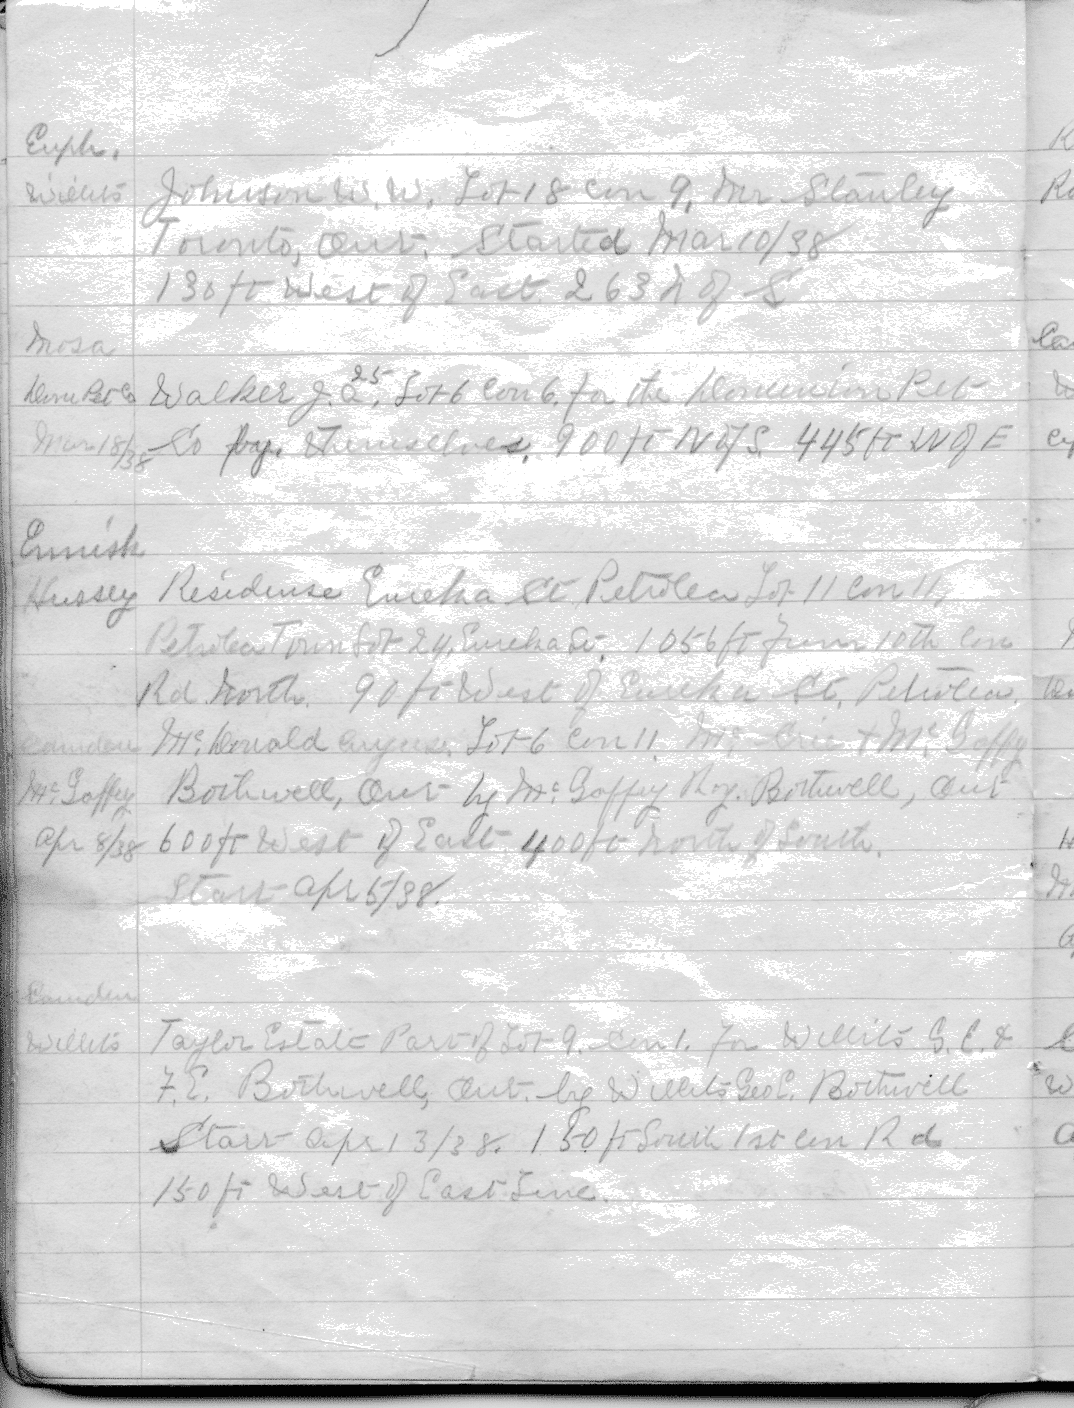 Euph.
Willits Johnson W. W. Lot 18 Con 9, Mr Stanley
Toronto, Ont. Started Mar 10/38
130 ft West of East 263 N of S
Mosa
Dom Pet Co Walker J. A. 25, Lot 6 Con 6, for the Dominion Pet
Mar 18/38 Co by. themselves. 900 ft N of S. 445 ft W of E
Ennisk
Hussey Residense Eureka St Petrolea Lot 11 Con 11,
Petrolea Town Lot 24, Eureka St. 1056 ft from 10th Con
Rd North. 90 ft West of Eureka St, Petrolea.
Camden Mc Donald Lot 6 Con 11. Mc + Mc Gaffey
Mc Gaffey Bothwell, Ont by Mc Gaffey Roy. Bothwell, Ont
Apr 8/38 600 ft West of East 400 ft North of South.
Start Apr 5/38.
Camden
Willits Taylor Estate Part of Lot 9. Con 1. For Willits G. E. &
F. E. Bothwell, Ont. by Willits Geo E. Bothwell
Start Apr 13/38. 150 ft South 1st Con Rd
150 ft West of East Line.